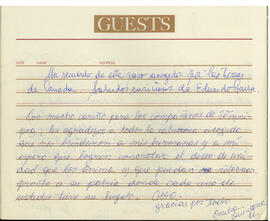 GUESTS
DATE NAME ADDRESS
Un recuerdo de este paso acogedor por las tierras
de Canada. Saludos cariñosos de Eduardo
Con mucho cariño para los compañeros de Winni-
peg, les agradezco a todos la calurosa acogida
que nos brindaron a mis hermanas y a mi
espero que logren concretar el deseo de uni-
dad que los anima y que puedan retornar
pronto a su patria donde cada uno de
ustedes tiene su lugar. Chao.
gracias por todo